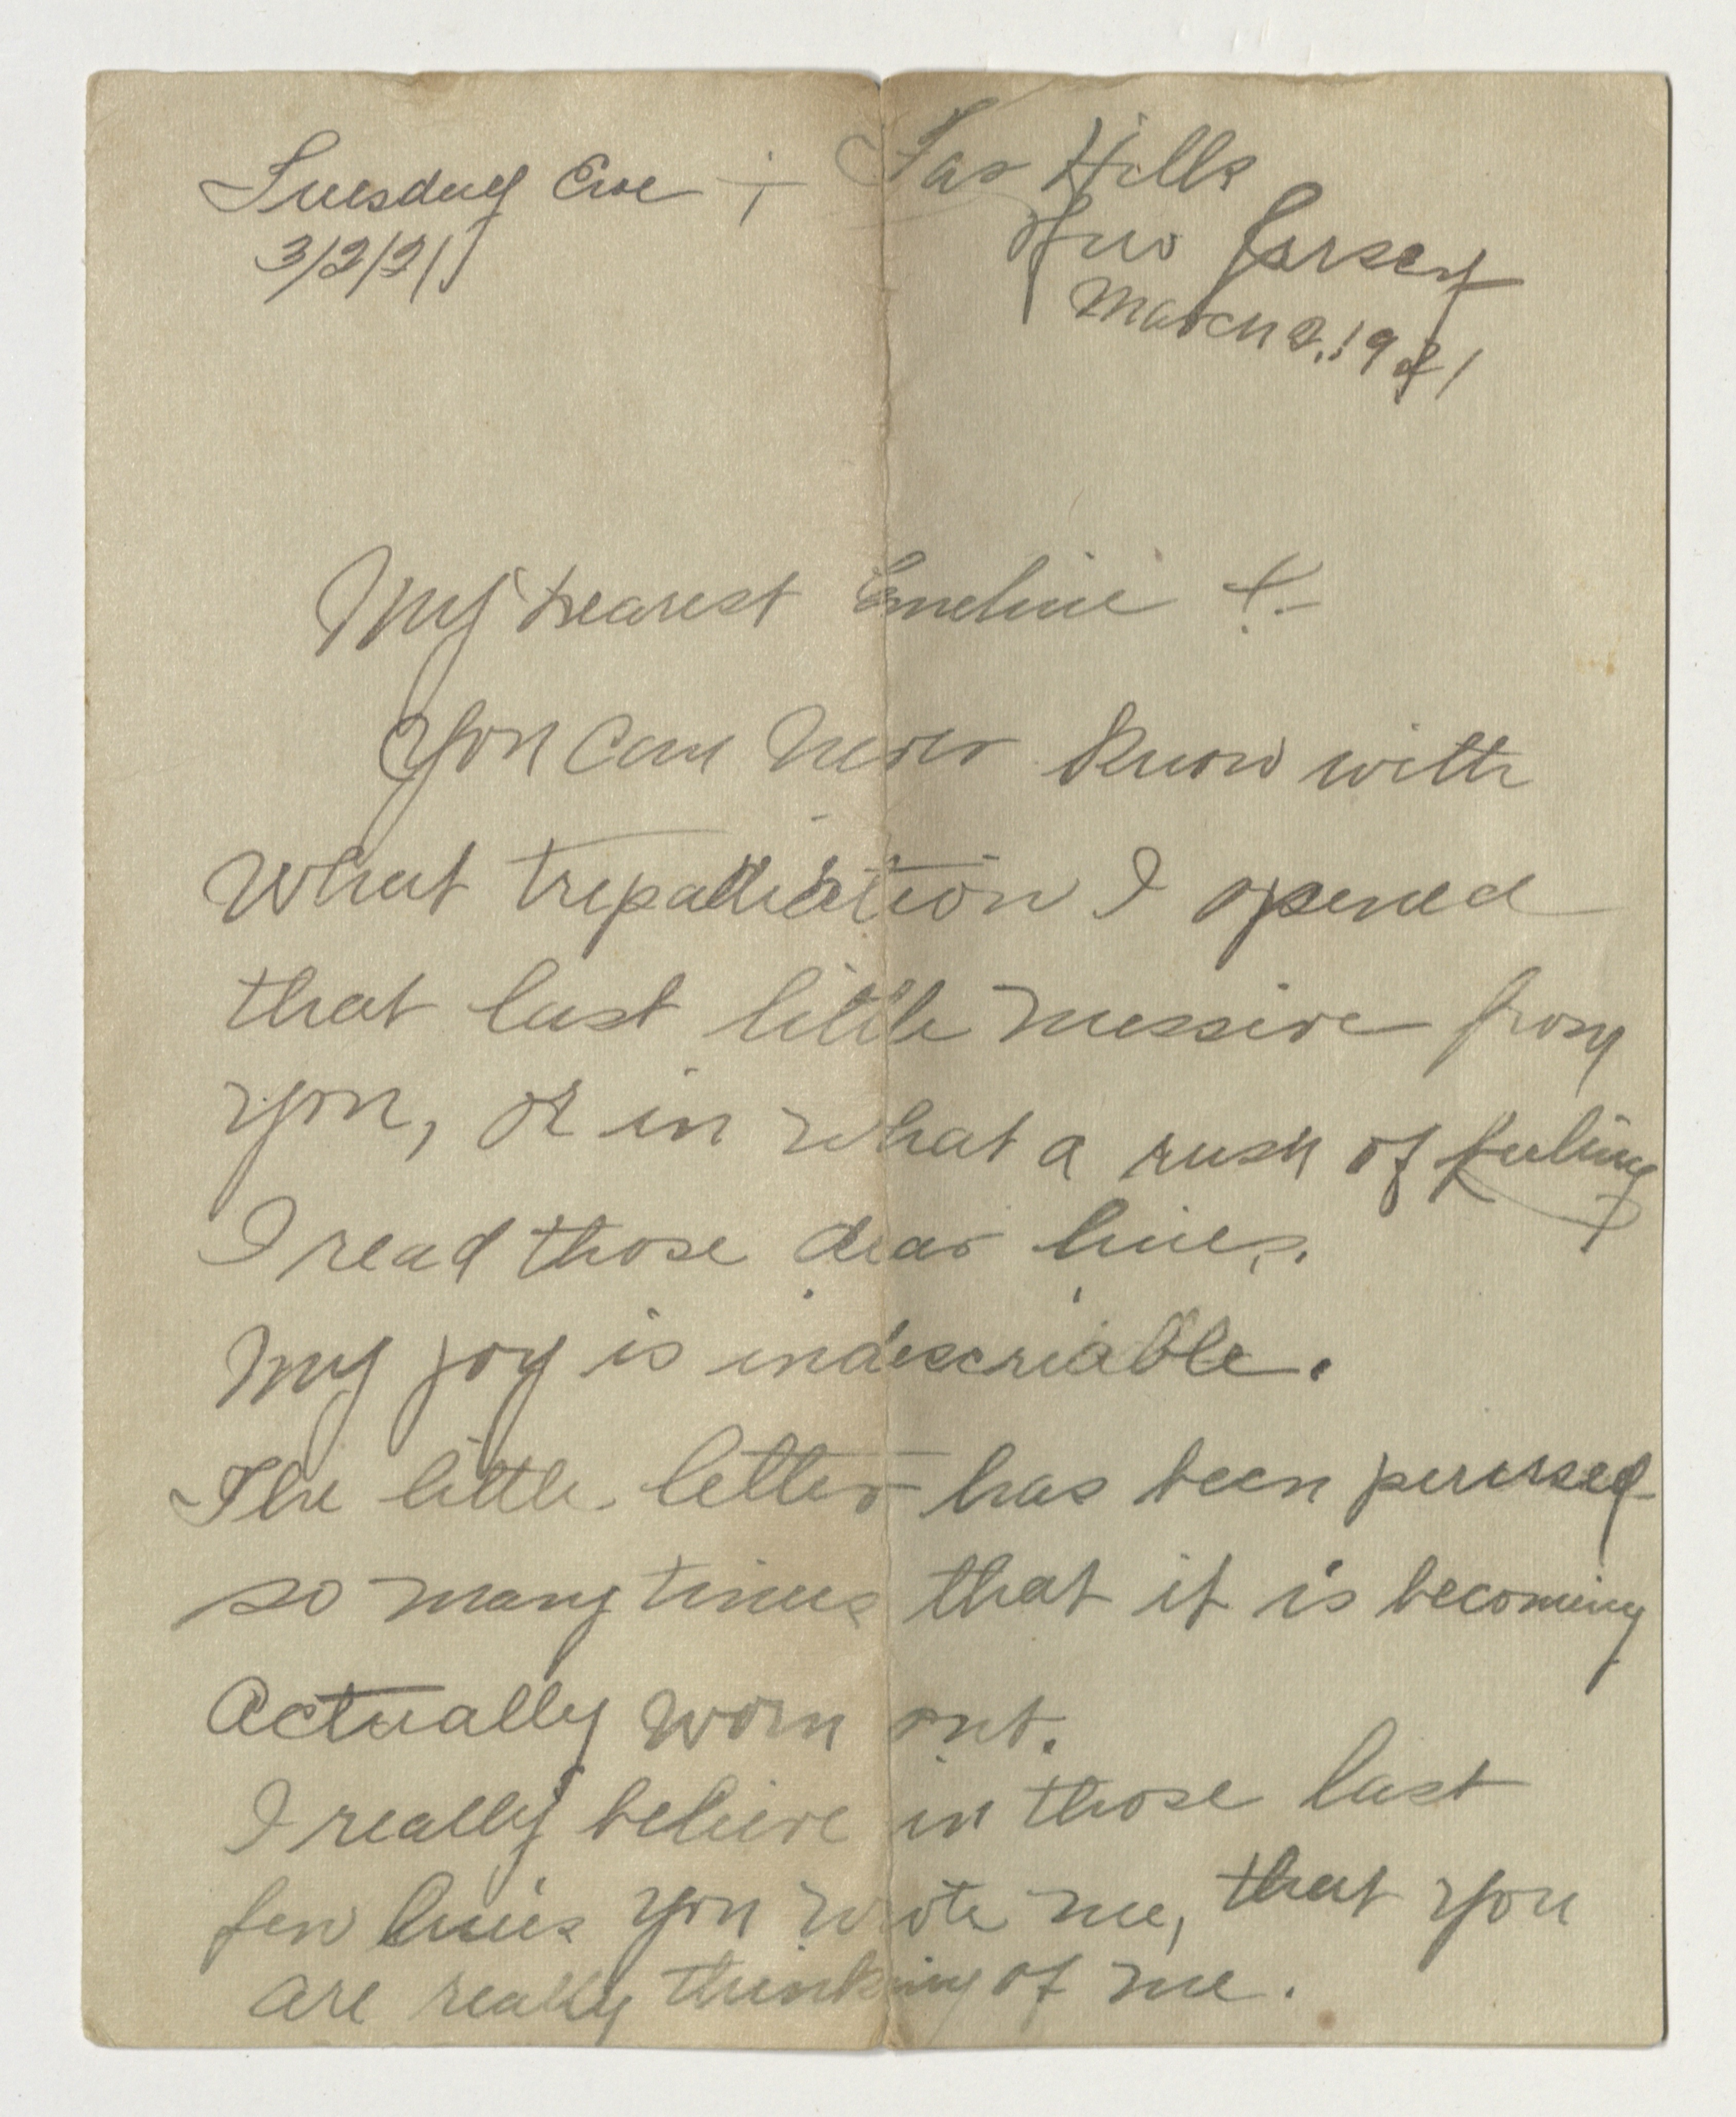 Tuesday Eve -;-
3/2/21
Far Hills
New Jersey
March 2, 1921
My Dearest Emeline :-
You Can Never Know with
What trepadiation I opened
that last little messive from
you, or in what a rush of feeling
I read those dear lines.
My joy is indescriable.
The little letter has been perused
so many times that it is becoming
Actually worn out.
I really believe in those last
few lines you wrote me, that you
are really thinking of me.